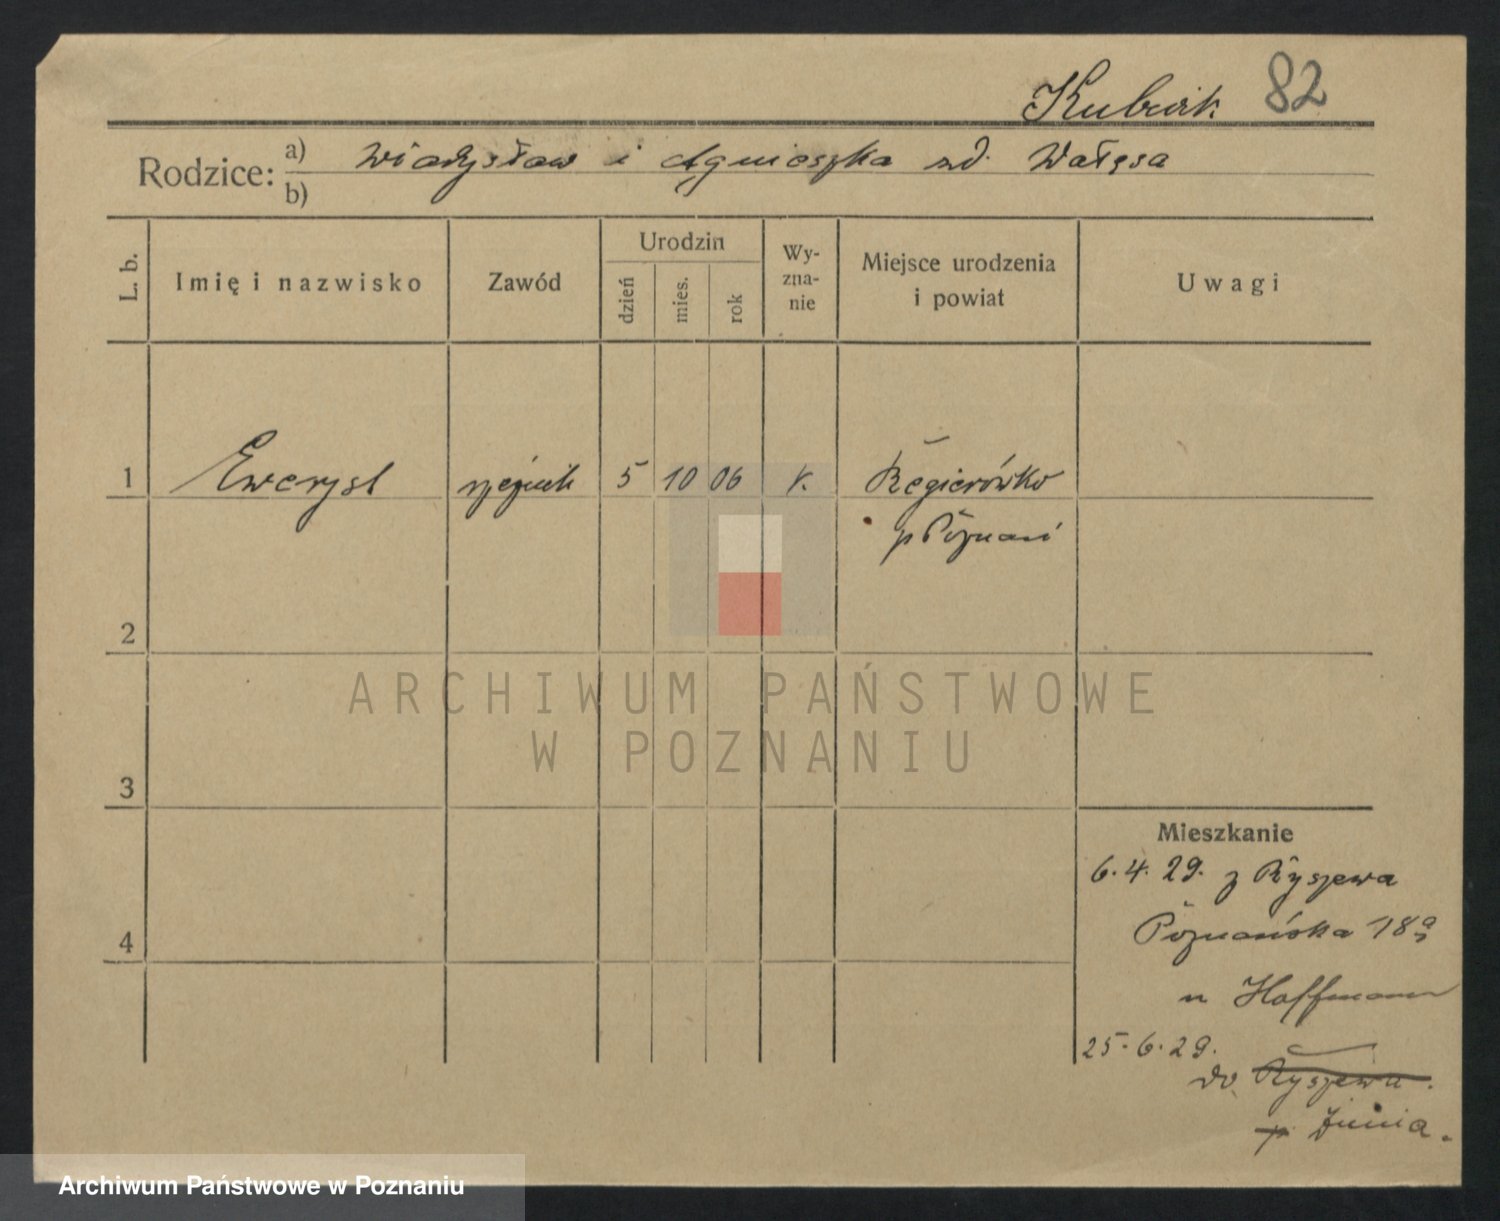 Kubiak 82
Rodzice: a) Władysław i Agnieszka zd. Wałęsa
b)
L. b.
Imię i nazwisko
Zawód
Urodzin
dzień
mies.
rok
Wy-
zna-
nie
Miejsce urodzenia
i powiat
Uwagi
1 Ewaryst 5 10 06 k.
p Poznań
2
ARCHIWUM PAŃSTWOWE
W POZNANIU
3
Mieszkanie
6.4.29. z Ryszewa
4
Poznańska 18
u Hoffmann
25.6.29.
do Ryszewa.
p Żnina.
Archiwum Państwowe w Poznaniu